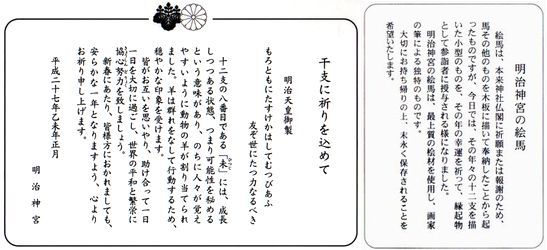 明治神宮の絵馬
絵馬は、本来神社仏閣に祈願または報謝のため、
馬その他のものを木板に描いて奉納したことから起
ったものですが、今日では、その年々の十二支を描
いた小型のものを、その年の幸運を祈って、縁起物
として参詣者に授与される様になりました。
明治神宮の絵馬は、最上質の桧材を使用し、画家
の筆による独特のものです。
大切にお持ち帰りの上、末永く保存されることを
希望いたします。
干支に祈りを込めて
明治天皇御製
もろともにたすけかはしてむつびあふ
友ぞ世にたつ力なるべき
十二支の八番目である「未」には、成長
しつつある状態、つまり可能性を秘める
という意味があり、のちに人々が覚え
やすいように動物の羊が割り当てられ
ました。羊は群れをなして行動するため、
穏やかな印象を受けます。
皆がお互いを思いやり、助け合って一日
一日を大切に過ごし、世界の平和と繁栄に
協心努力を致しましょう。
新春にあたり、皆様方におかれましても、
安らかな一年となりますよう、心より
お祈り申し上げます。
平成二十七年乙未年正月
明治神宮